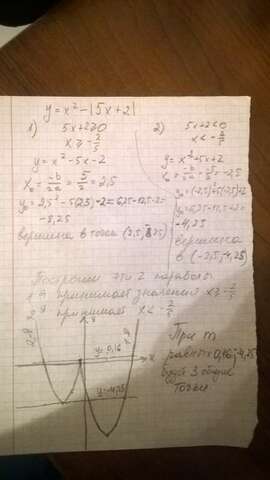 y=x²-|5x+2|
1) 5x+2≥0
x≥-2/5
y=x²-5x-2
x₀=-b/2a=5/2=2,5
y₀=2,5²-5(2,5)-2=6,25-12,5-2=
-8,25
вершина в точке (2,5;-8,25)
2) 5x+2<0
x<-2/5
y=x²+5x+2
x₀=-b/2a=-5/2=-2,5
y₀=(-2,5)²+5(-2,5)+2
y₀=6,25-12,5+2=
-4,25
вершина
в (-2,5;-4,25)
Построим эти 2 параболы
1-я принимает значения x≥-2/5
2-я принимает x<-2/5
y=0,16
x
y=-4,25
При m
равном 0,16;-4,25
будет 3 общие
точки